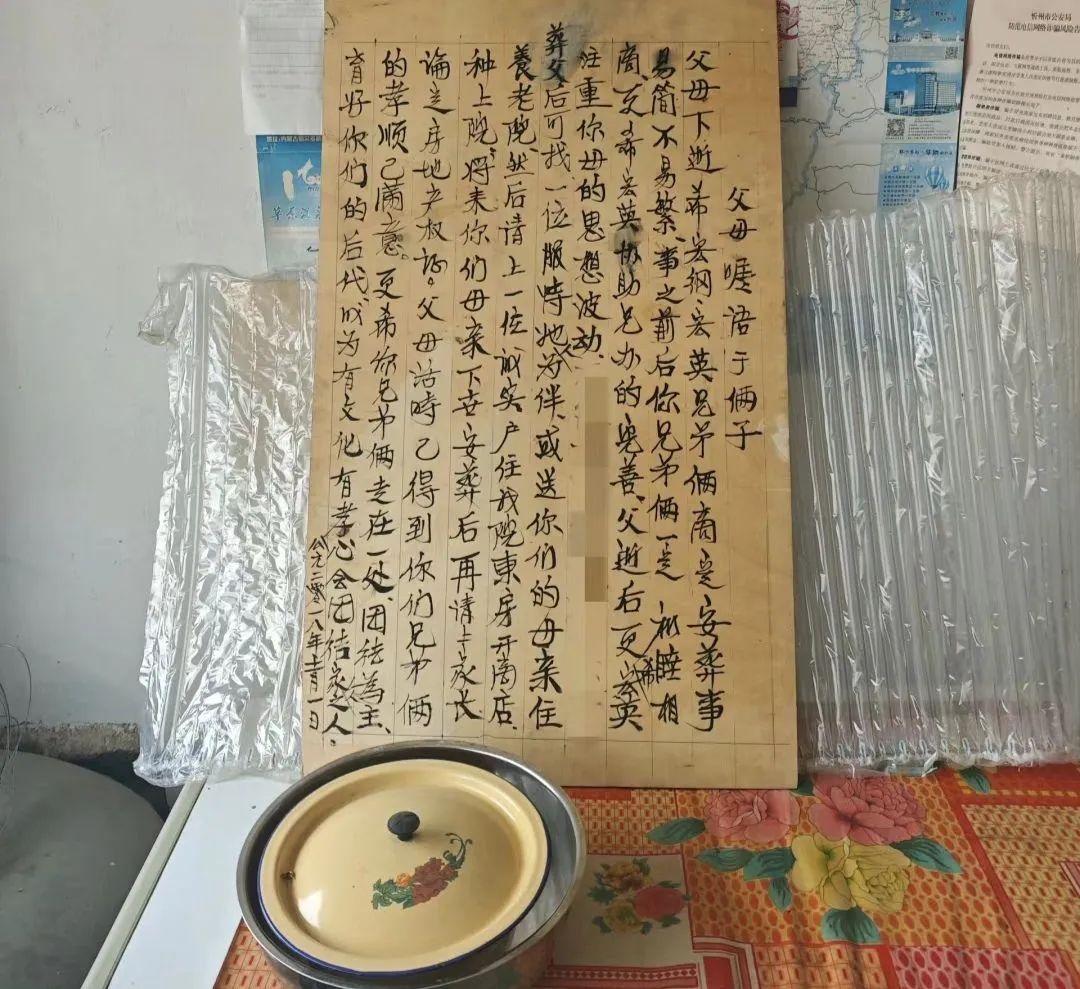 父母嘱语于俩子
父母下逝希宏纲宏英兄弟俩商定安葬事
易简不易繁、事之前后你兄弟俩一定和睦相
商,更希宏英协助兄办的完善、父逝后更希宏英
注重你母的思想波动、
葬父后可找一位服時她为伴、或送你们的母亲住
養老院、然后请上一位诚实户住我院東房开商店、
种上院、将来你们母亲下世安葬后再请上家长
论定房地产权
父母活時已得到你们兄弟俩
的孝顺已满意。更希你兄弟俩走在一处、团结為主、
育好你们的后代、成为有文化有孝心会团结家之人.
公元二零一八年 月一日
忻州市公安局
防范电信网络诈骗风险告